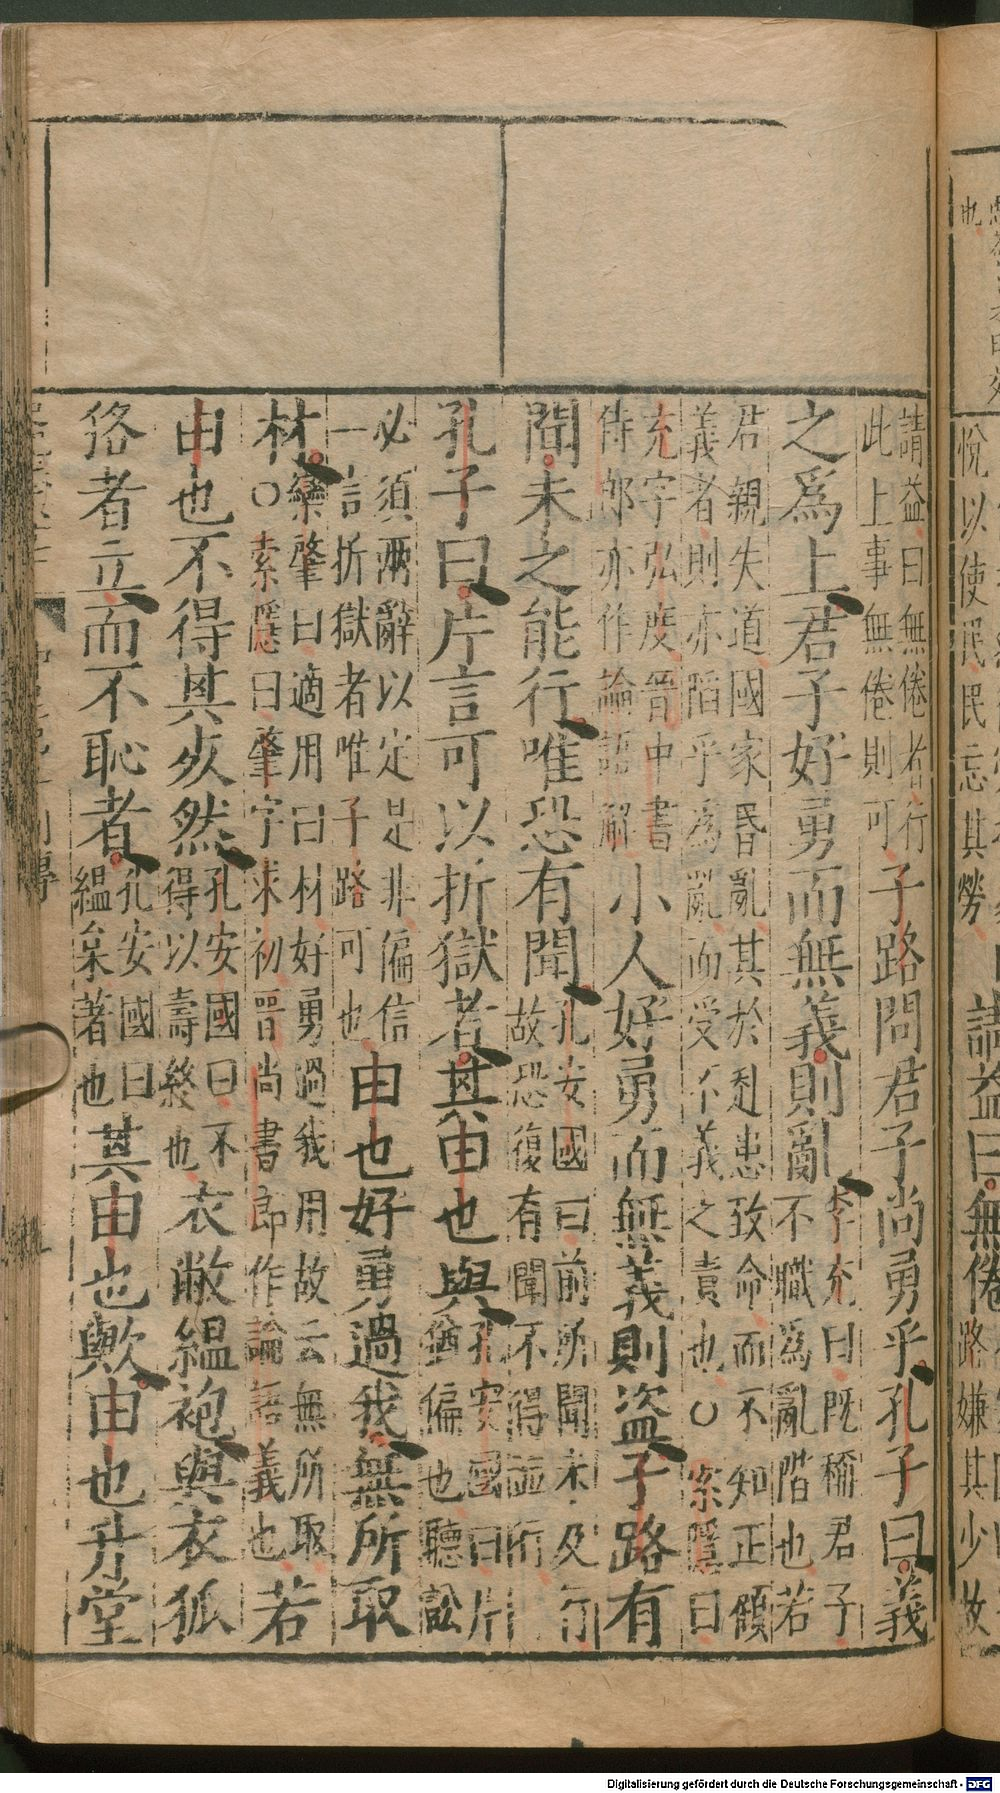 請益曰無倦者行
此上事無倦則可子路問君子尚勇乎孔子曰義
之爲上君子好勇而無義則亂李充曰既稱君子
不職為亂階也若
君親失道國家昏亂其於赴患致命而不知正顧
義者則亦陷乎為亂而受不義之責也○索隱曰
充字弘度晉中書
侍郎亦作論語解小人好勇而無義則盜子路有
聞未之能行唯恐有聞孔安國曰前所聞未及行
故恐復有聞不得並行
孔子曰片言可以折獄者其由也與孔安國曰片
猶偏也聽訟
必須兩辭以定是非偏信
一言折獄者唯子路可也由也好勇過我無所取
材欒肇曰適用曰材好勇過我用故云無所取
○索隱曰肇字永初晉尚書郎作論語義也若
由也不得其死然孔安國曰不
得以壽終也衣敝縕袍與衣狐
狢者立而不恥者孔安國曰
縕枲著也其由也歟由也升堂
悅以使民民忘其勞
請益曰無倦
路嫌其少故
Digitalisierung gefördert durch die Deutsche Forschungsgemeinschaft - DFG